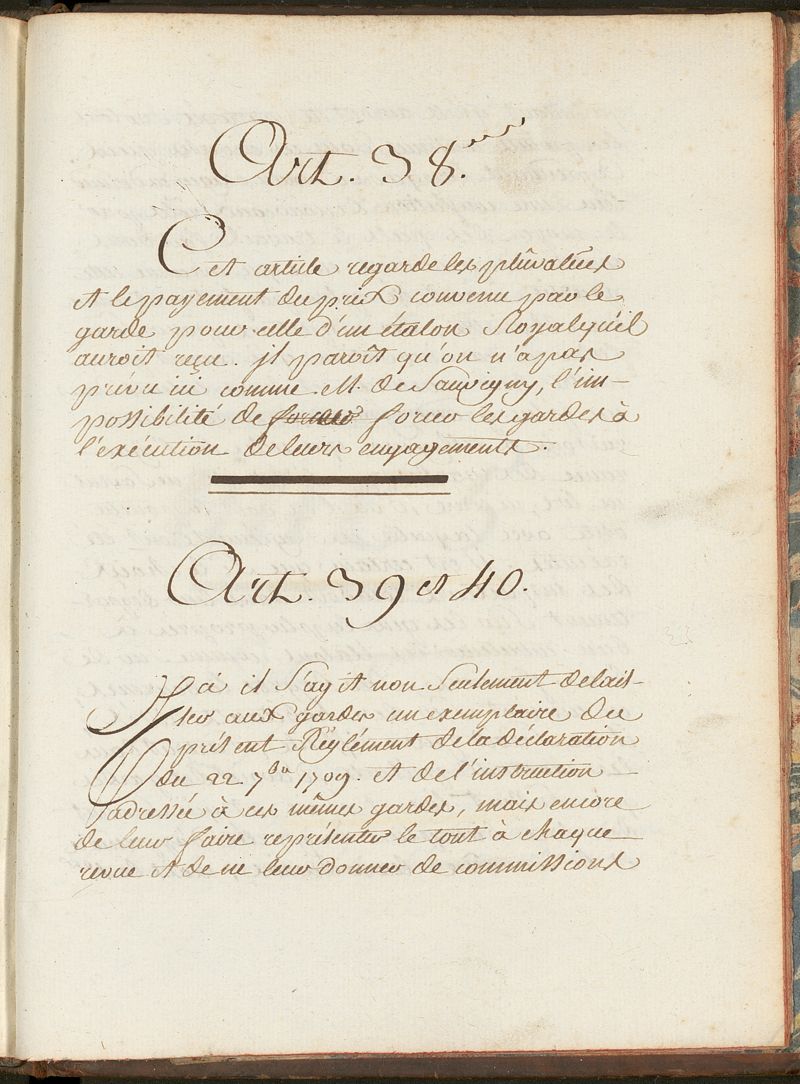 Art. 38.
Cet article regarde les plûvalües
et le payement du prix convenu par le
garde pour celle d'un étalon Royal qu'il
auroit reçu. jl paroît qu'on n'a pas
prévu ici comme M. de Sauvigny, l'im-
possibilité de forcer forcer les gardes à
l'exécution de leurs engagements.
Art. 39 et 40.
Ici il s'agit non seulement de lais-
ser aux gardes un exemplaire du
présent Réglement de la déclaration
du 22 7bre 1709. et de l'instruction
adressée à ces mêmes gardes, mais encore
de leur faire représenter le tout à chaque
revue et de ne leur donner de commissions